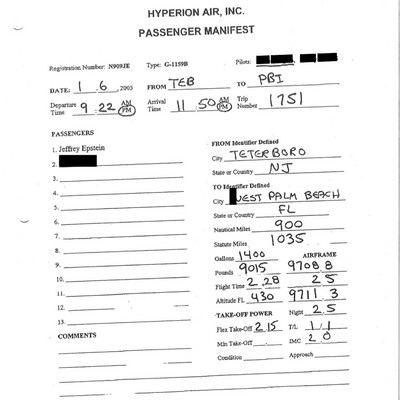 HYPERION AIR, INC.
PASSENGER MANIFEST
Registration Number: N909JE Type: G-1159B Pilots:
DATE: 1 6 ,2003 FROM TEB TO PBI
Departure Time 9 22 AM PM Arrival Time 11 50 AM PM Trip Number 1751
PASSENGERS
1. Jeffrey Epstein
2.
3.
4.
5.
6.
7.
8.
9.
10.
11.
12.
13.
COMMENTS
FROM Identifier Defined
City TETERBORO
State or Country NJ
TO Identifier Defined
City WEST PALM BEACH
State or Country FL
Nautical Miles 900
Statute Miles 1035
Gallons 1400 AIRFRAME
Pounds 9015 9708 8
Flight Time 2 . 28 2 5
Altitude FL 430 9711 3
TAKE-OFF POWER Night 2 5
Flex Take-Off 2.15 T/L 1 / 1
Min Take-Off IMC 2 0
Condition Approach